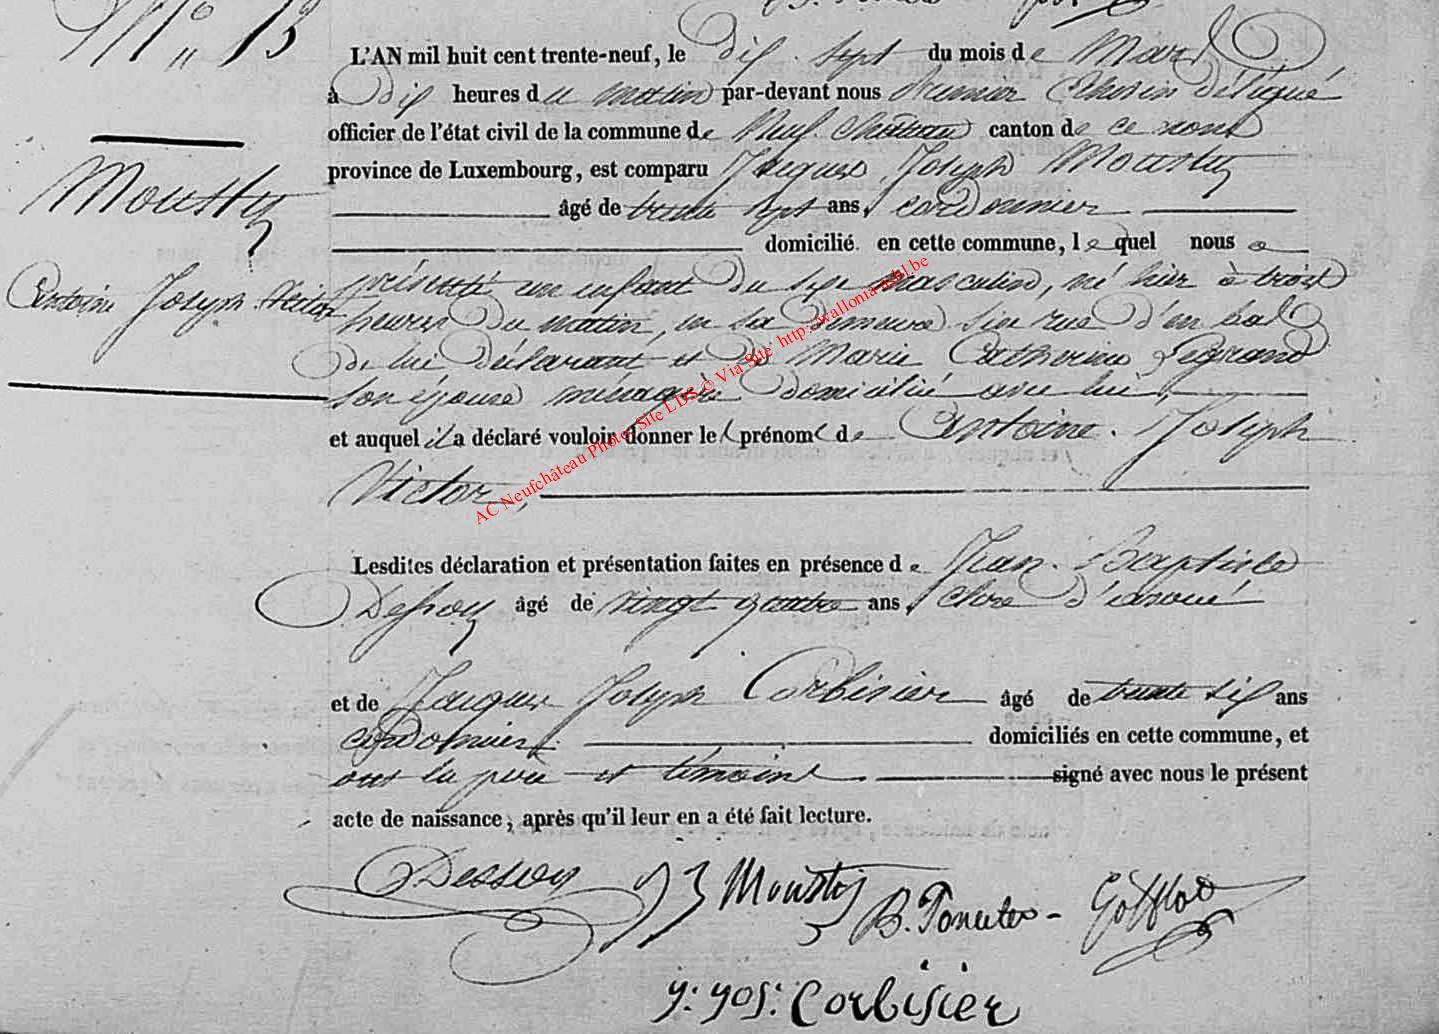 N° 13
L'AN mil huit cent trente-neuf, le dix sept du mois de Mars
à dix heures du matin par-devant nous Premier Echevin délégué
officier de l'état civil de la commune de Neufchateau canton de ce nom
Mousty
province de Luxembourg, est comparu Jacques Joseph Mousty
âgé de trente sept ans, cordonnier
domicilié en cette commune, lequel nous a
Antoine Joseph Victor
présenté un enfant du sexe masculin, né hier à trois
heures du matin, en sa demeure sise rue d'en bas
de lui déclarant et de Marie Catherine Legrand
son épouse ménagère domicilié avec lui,
et auquel il a déclaré vouloir donner les prénoms de Antoine Joseph
Victor,
AC Neufchâteau Photo: Site LDS © Via Site http://wallonia-asbl.be
Lesdites déclaration et présentation faites en présence de Jean Baptiste
Dessoy âgé de vingt quatre ans, clerc d'avoué
et de Jacques Joseph Corbisier âgé de trente six ans
cordonnier domiciliés en cette commune, et
ont les père et témoins signé avec nous le présent
acte de naissance, après qu'il leur en a été fait lecture.
Dessoy JJ Mousty
y: yos: Corbisier